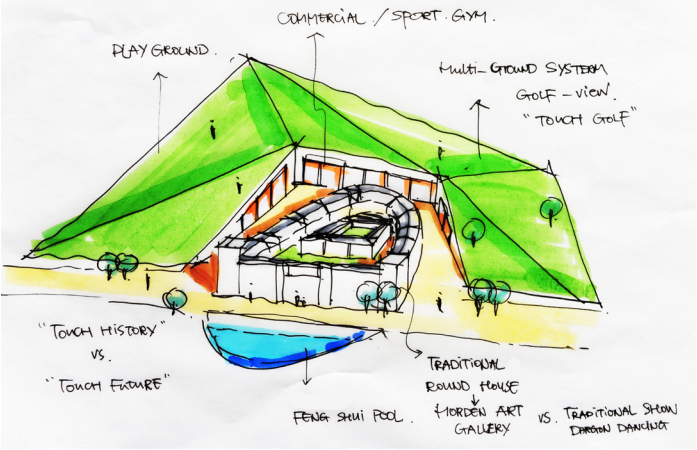 COMMERCIAL / SPORT. GYM.
PLAY GROUND.
MULTI-GROUND SYSTERM
GOLF-VIEW.
"TOUCH GOLF"
"TOUCH HISTORY"
VS.
"TOUCH FUTURE"
FENG SHUI POOL.
TRADITIONAL
ROUND HOUSE
MORDEN ART
GALLERY
VS. TRADITIONAL SHOW
DARGON DANCING